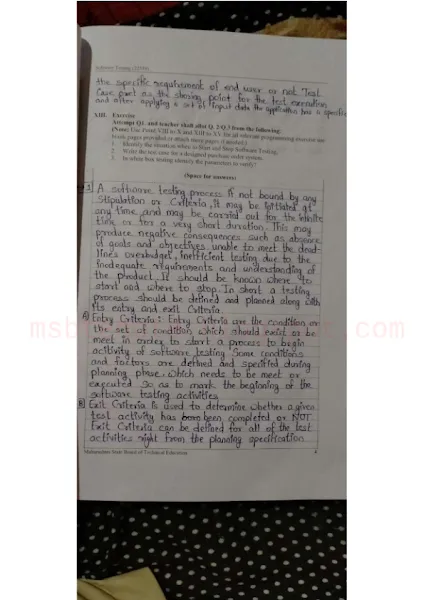 Software Testing (22518)
the specific requirement of end user or not. Test
Case part as the starting point for the test execution
and after applying a set of input data the application has a specific
XIII. Exercise
Attempt Q1. and teacher shall allot Q. 2/Q.3 from the following:
(Note: Use Point VIII to X and XIII to XV for all relevant programming exercise use
blank pages provided or attach more pages if needed.)
1. Identify the situation when to Start and Stop Software Testing.
2. Write the test case for a designed purchase order system.
3. In white box testing identify the parameters to verify?
(Space for answers)
1) A software testing process if not bound by any
Stipulation or Criteria, it may be initiated at
any time and may be carried out for the infinite
time or for a very short duration. This may
produce negative consequences such as absence
of goals and objectives, unable to meet the dead-
lines overbudget, inefficient testing due to the
inadequate requirements and understanding of
the product. It should be known where to
start and where to stop. In short a testing
process should be defined and planned along with
its entry and exit Criteria.
Entry Criteria: Entry Criteria are the condition or
the set of condition which should exist or be
meet in order to start a process to begin
acitivity of software testing Some conditions
and factors are defined and specified during
planning phase, which needs to be meet or
executed so as to mark the beginning of the
software testing activities
Exit Criteria is used to determine whether a given
test activity has been completed or NOT.
Exit Criteria can be defined for all of the test
activities right from the planning specification
Maharashtra State Board of Technical Education